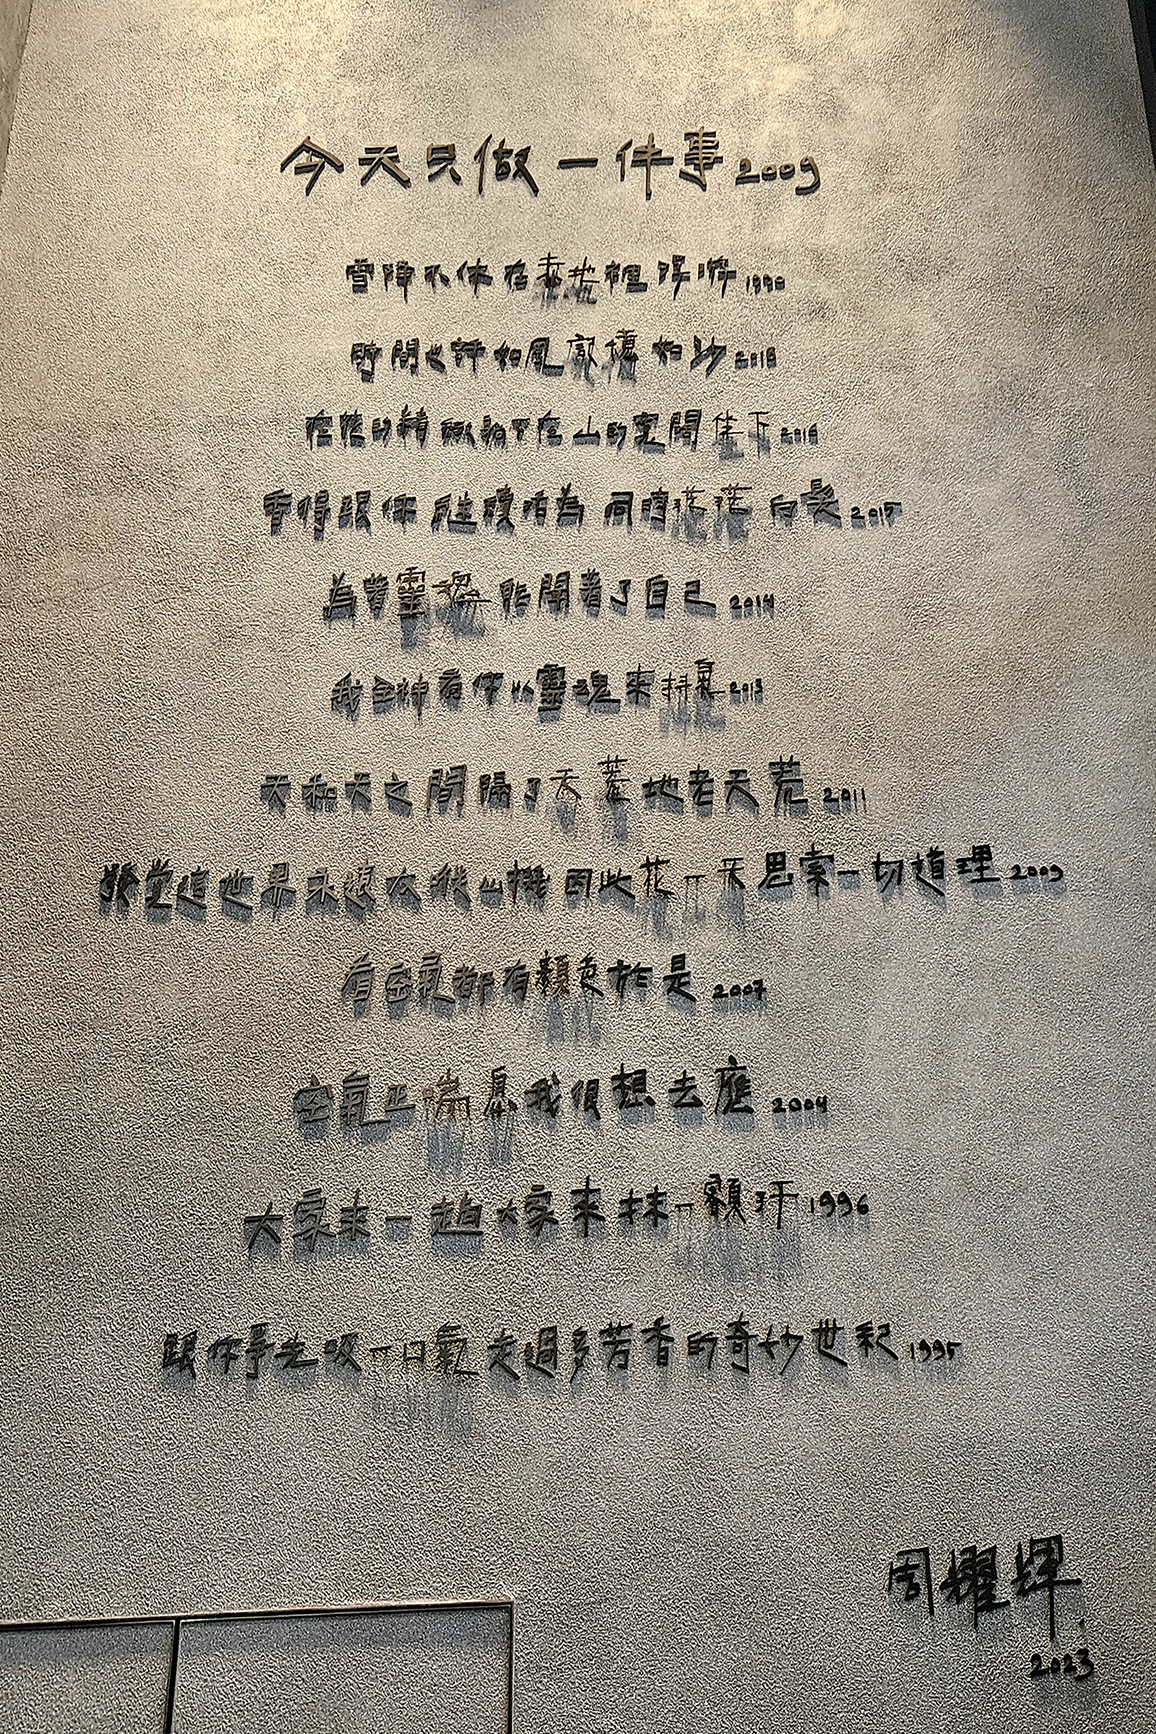 今天只做一件事2009
雪降不休在泰地裡浮游1990
時間也許如風廓樓如沙2018
在陰的精緻躺下在山的寬闊坐下2016
捨得跟你 繼續活為 同時落落 白髮2017
為著靈魂能開著了自己2014
我全神看你以靈魂來抖氣2013
天和天之間隔了天蒼地老天荒2011
驚覺這世界永遠太多山機因此花一天思索一切道理2009
看空氣都有顏色於是2007
空氣正喘息我很想去應2004
大家來一趟大家來抹一額汗1996
跟你爭先吸一口氣走過多芳香的奇妙世紀1995
周耀輝
2023